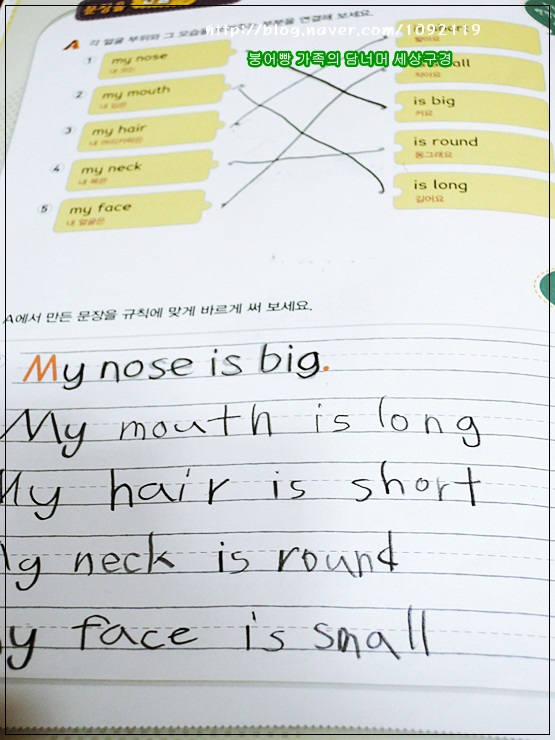 문장을
http://blog.naver.com/1092119
A 각 얼굴 부위와 그 모습을 부분을 연결해 보세요.
붕어빵 가족의 담너머 세상구경
1 my nose
2 my mouth
내 입은
3 my hair
내 머리카락은
4 my neck
내 목은
5 my face
내 얼굴은
짧아요
작아요
is big
커요
is round
동그래요
is long
길어요
A에서 만든 문장을 규칙에 맞게 바르게 써 보세요.
My nose is big.
My mouth is long
My hair is short
My neck is round
My face is small